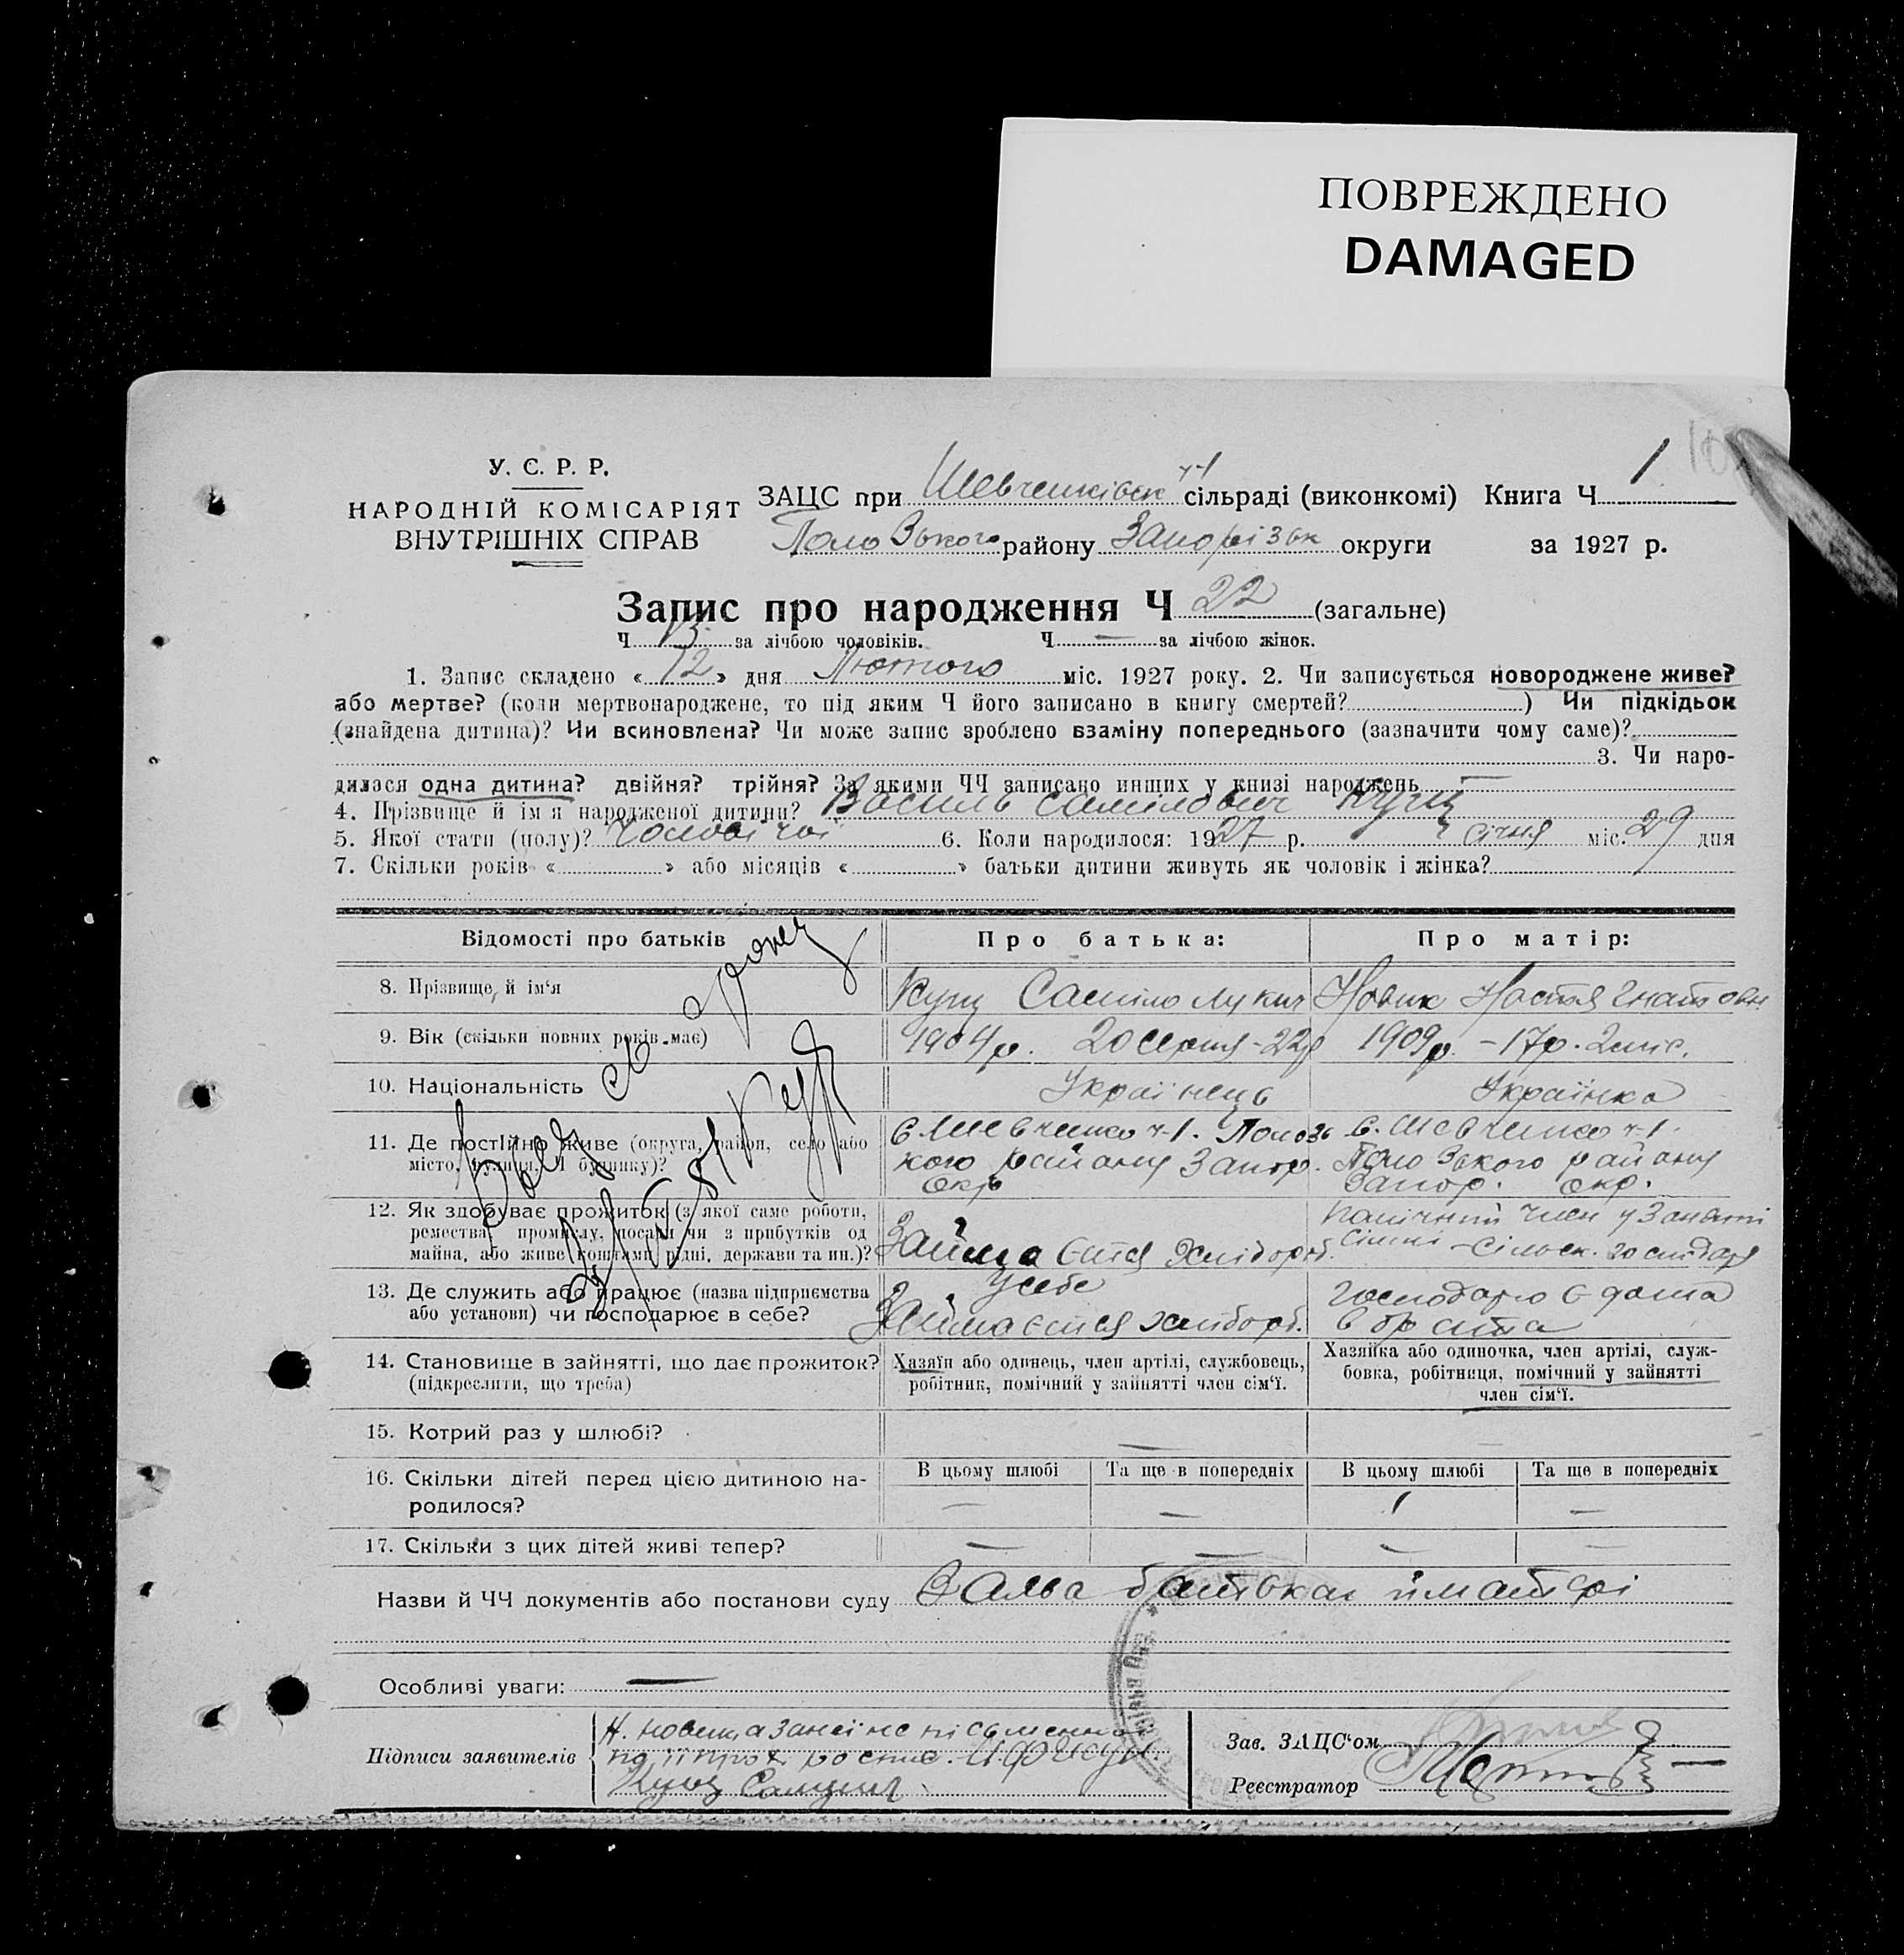 ПОВРЕЖДЕНО
DAMAGED
У. С. Р. Р.
НАРОДНІЙ КОМІСАРІЯТ
ВНУТРІШНІХ СПРАВ
ЗАЦС при Шевченківськ ч-1 сільраді (виконкомі) Книга Ч 1
Пологівського району Запорізьк округи за 1927 р.
Запис про народження Ч 22 (загальне)
Ч 13 за лічбою чоловіків. Ч — за лічбою жінок.
1. Запис складено « 12 » дня Лютого міс. 1927 року. 2. Чи записується новороджене живе?
або мертве? (коли мертвонароджене, то під яким Ч його записано в книгу смертей? ) Чи підкідьок
(знайдена дитина)? Чи всиновлена? Чи може запис зроблено взаміну попереднього (зазначити чому саме)?
3. Чи наро-
дилася одна дитина? двійня? трійня? За якими ЧЧ записано инших у книзі народжень —
4. Прізвище й ім'я народженої дитини? Василь Самілович Куц
5. Якої стати (полу)? Чоловічої 6. Коли народилося: 1927 р. січня міс. 29 дня
7. Скільки років « » або місяців « » батьки дитини живуть як чоловік і жінка?
Відомості про батьків Про батька: Про матір:
8. Прізвище, й ім'я Куц Саміло Лукич Новик Настя Гнатовн.
9. Вік (скільки повних років має) 1904р. 20 Серпня-22р 1909р. -17р. 2міс.
10. Національність Українець Українка
11. Де постійно живе (округа, район, село або
місто, вулиця, Ч будинку)?
с Шевченко ч-1.
кого району Запор.
окр
с. Шевченко ч-1.
району
Запор. окр.
12. Як здобуває прожиток (з якої саме роботи,
ремества, промислу, посади чи з прибутків од
майна, або живе коштами рідні, держави та ин.)?
Займається хлібороб.
помічний член у занятті
сімні -сільск. господаря
13. Де служить або працює (назва підприємства
або установи) чи господарює в себе?
У себе
Займається хлібороб.
господарює дома
14. Становище в зайнятті, що дає прожиток?
(підкреслити, що треба)
Хазяїн або одинець, член артілі, службовець,
робітник, помічний у зайнятті член сім'ї.
Хазяйка або одиночка, член артілі, служ-
бовка, робітниця, помічний у зайнятті
член сім'ї.
15. Котрий раз у шлюбі? —
16. Скільки дітей перед цією дитиною на-
родилося?
В цьому шлюбі Та ще в попередніх В цьому шлюбі Та ще в попередніх
— — 1 —
17. Скільки з цих дітей живі тепер? — — — —
Назви й ЧЧ документів або постанови суду Заява батька й матері
Особливі уваги: —
Підписи заявителів
Куц
Зав. ЗАЦС'ом
Реєстратор